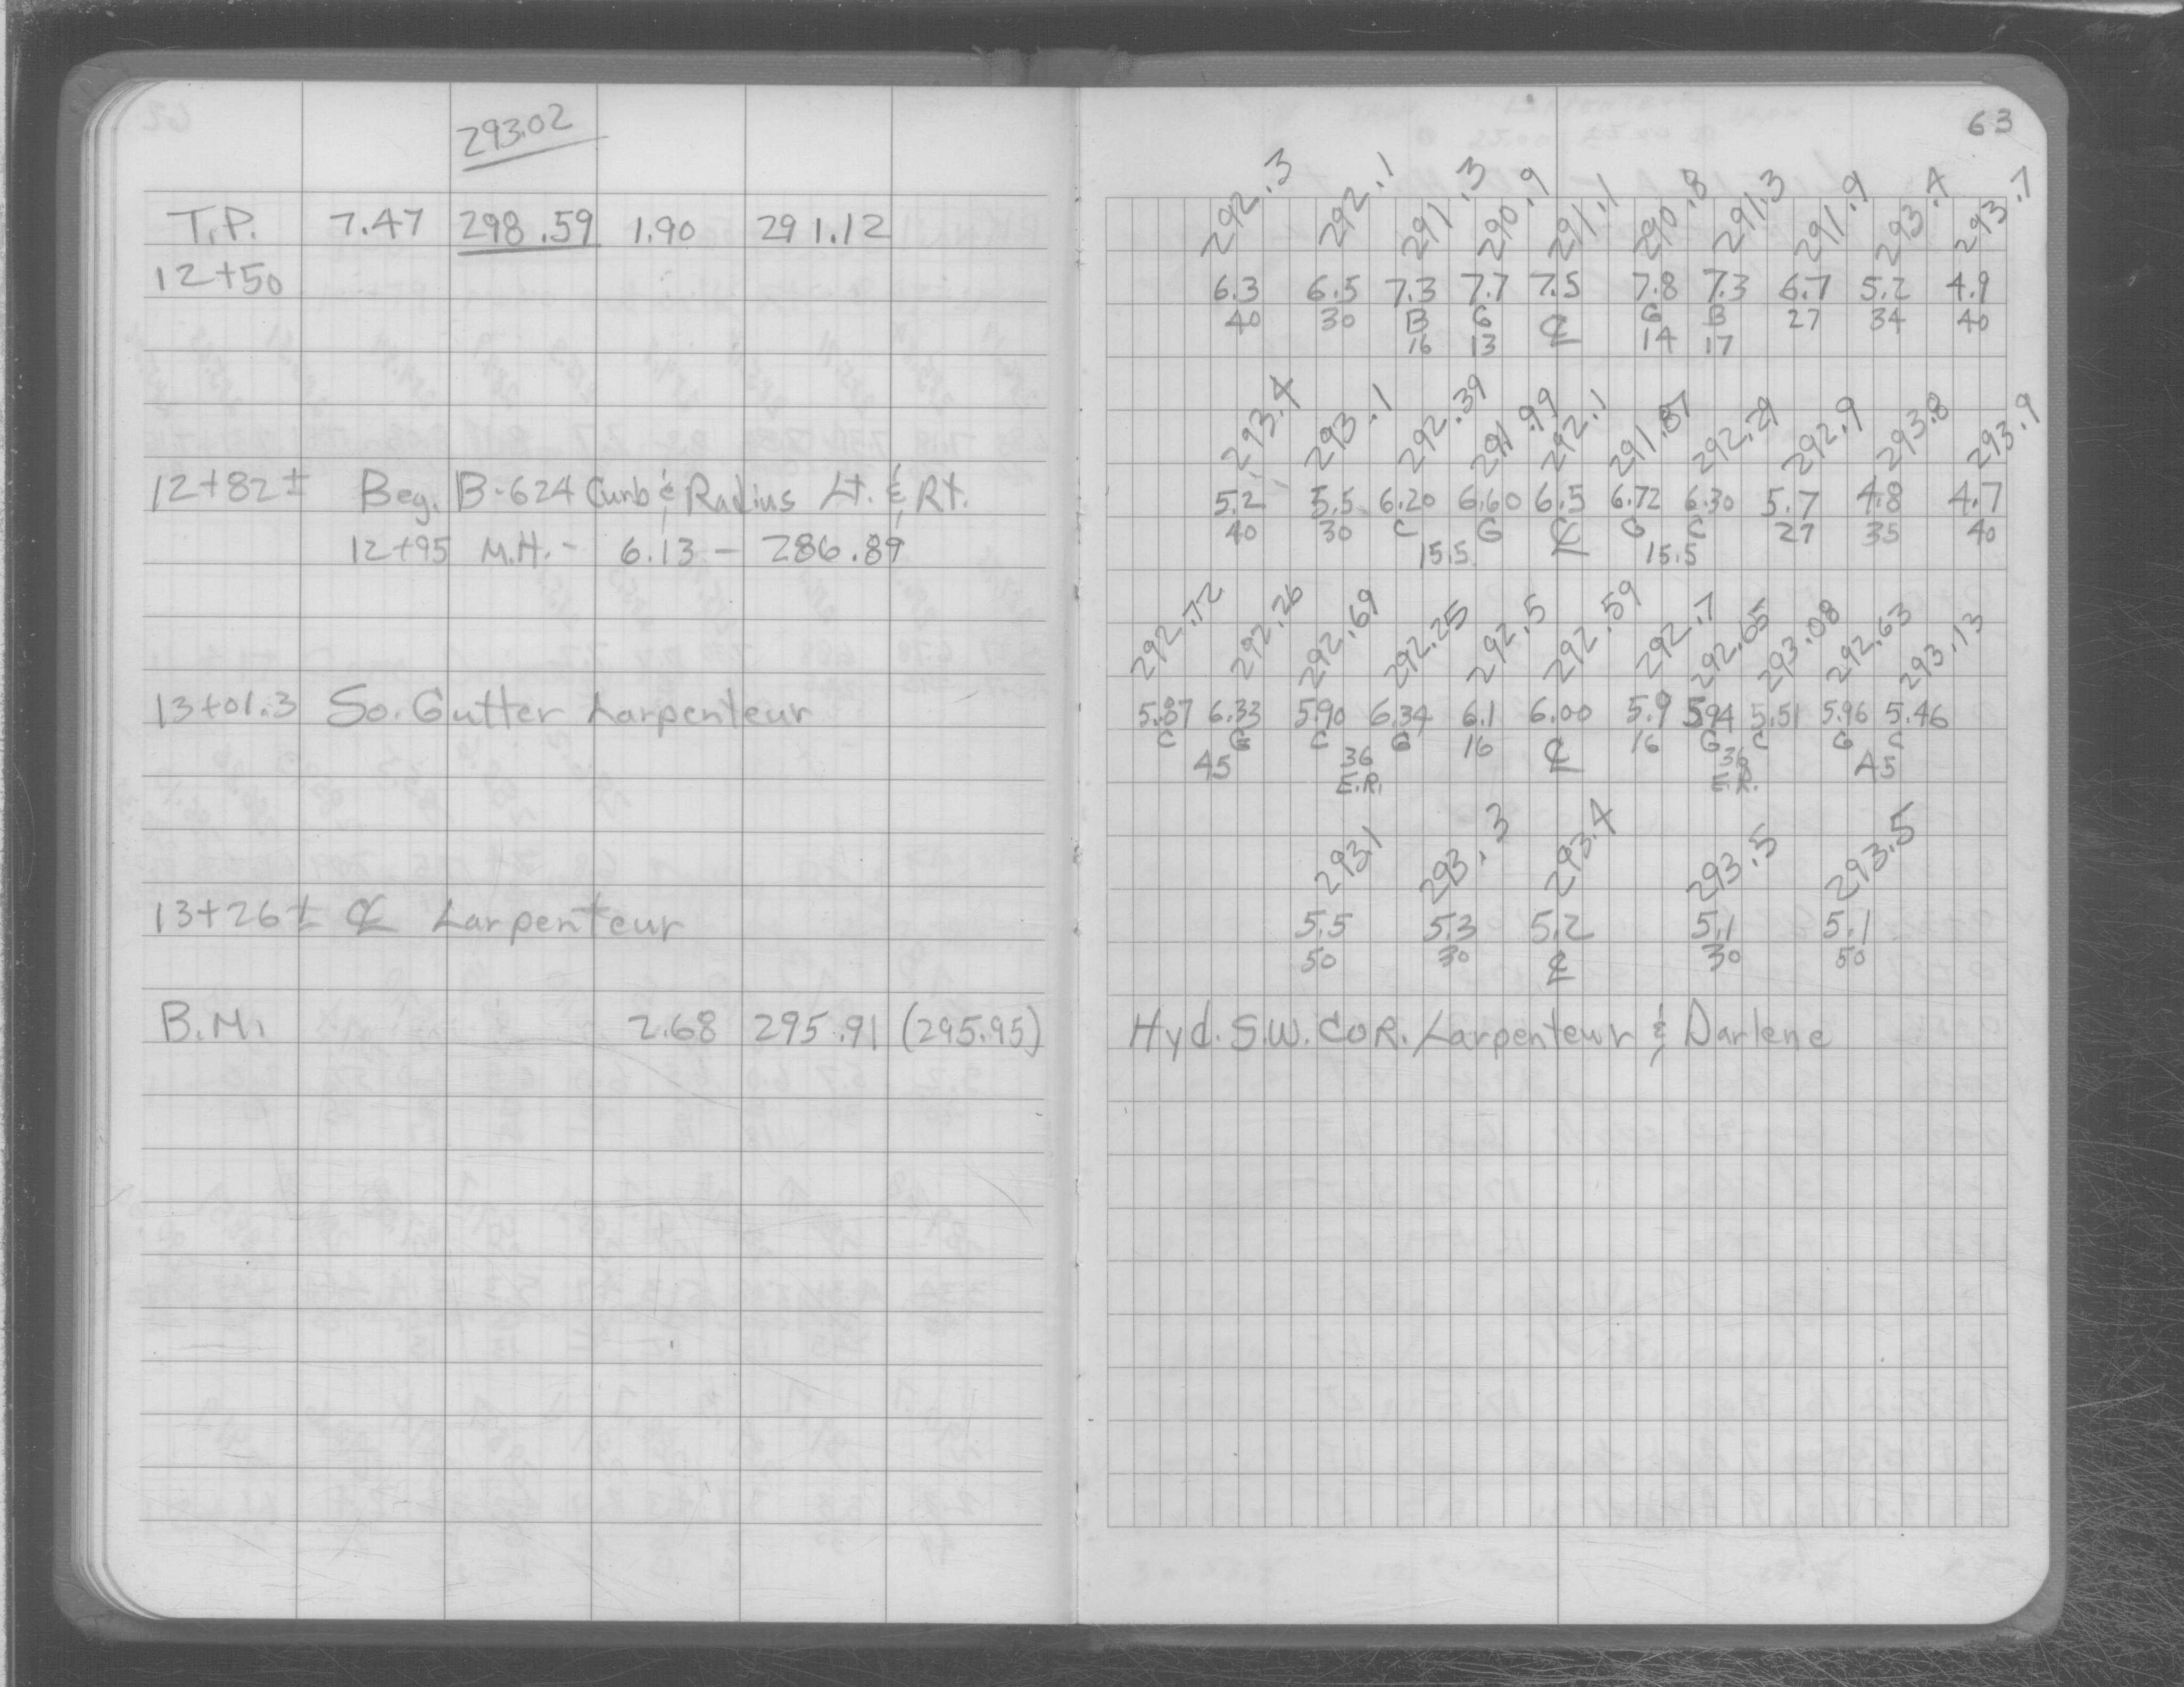 63
293.02
T.P. 7.47 298.59 1.90 291.12
292.3 292.1 291.3 290.9 291.1 290.8 291.3 291.9 293.4 293.7
12+50 6.3 6.5 7.3 7.7 7.5 7.8 7.3 6.7 5.2 4.9
40 30 B G ℄ G B 27 34 40
16 13 14 17
293.4 293.1 292.39 291.99 292.1 291.87 292.29 292.9 293.8 293.9
12+82± Beg. B-624 Curb & Radius Lt. & Rt. 5.2 5.5 6.20 6.60 6.5 6.72 6.30 5.7 4.8 4.7
40 30 C G ℄ G C 27 35 40
12+95 M.H. - 6.13 - 286.89 15.5 15.5
292.72 292.26 292.69 292.25 292.5 292.59 292.7 292.65 293.08 292.63 293.13
13+01.3 So. Gutter Larpenteur 5.87 6.33 5.90 6.34 6.1 6.00 5.9 5.94 5.51 5.96 5.46
C G C G 16 ℄ 16 G C G C
45 36 36 45
E.R. E.R.
293.1 293.3 293.4 293.5 293.5
13+26± ℄ Larpenteur 5.5 5.3 5.2 5.1 5.1
50 30 ℄ 30 50
B.M. 2.68 295.91 (295.95) Hyd. S.W. COR. Larpenteur & Darlene